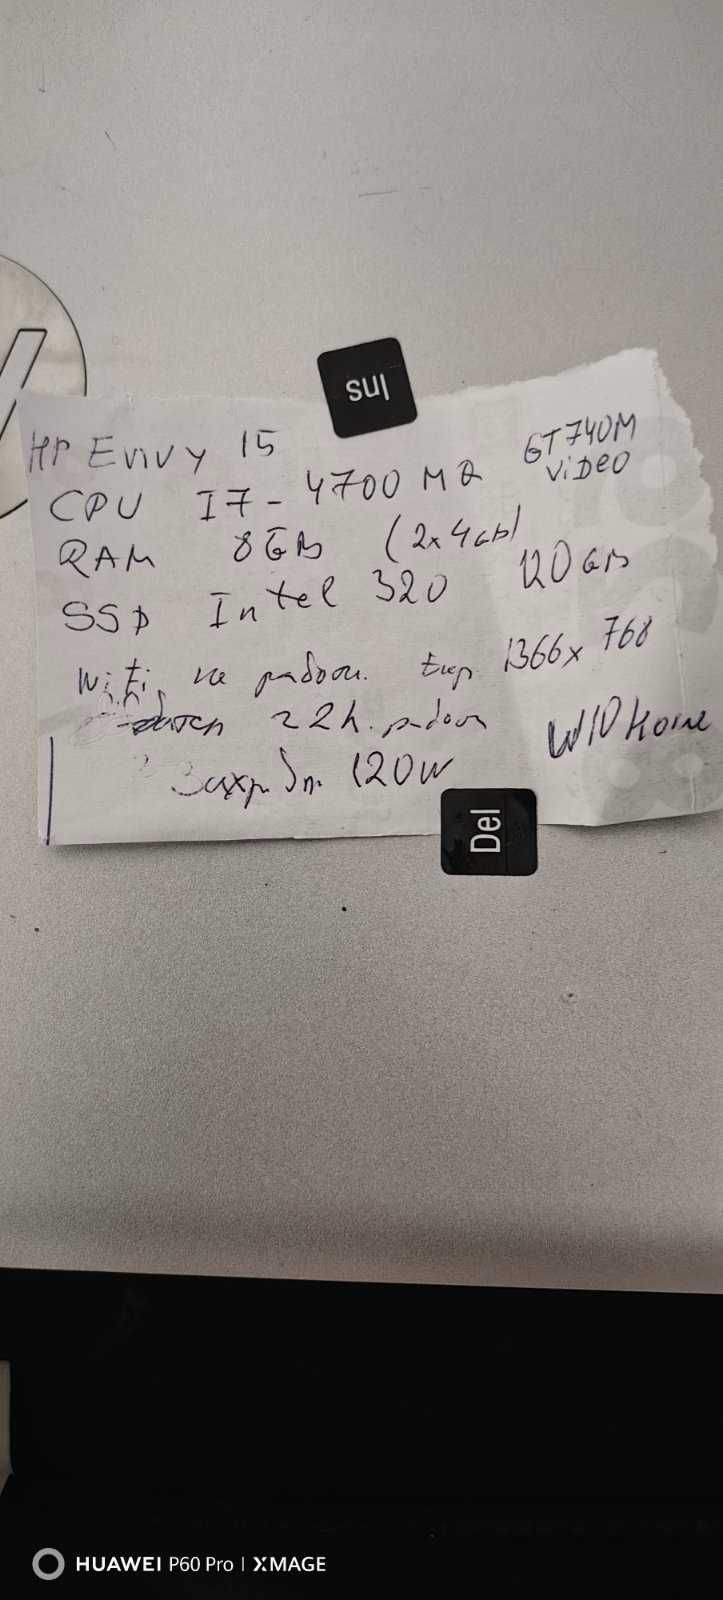 Ins
HP Envvy 15
CPU I7-4700MQ GT740M
VIDEO
RAM 8GB (2x4GB)
SSD Intel 320 120GB
WiFi не работи. Екр. 1366x768
~2h. работи W10 Home
Захр. бл. 120W
Del
HUAWEI P60 Pro | XMAGE